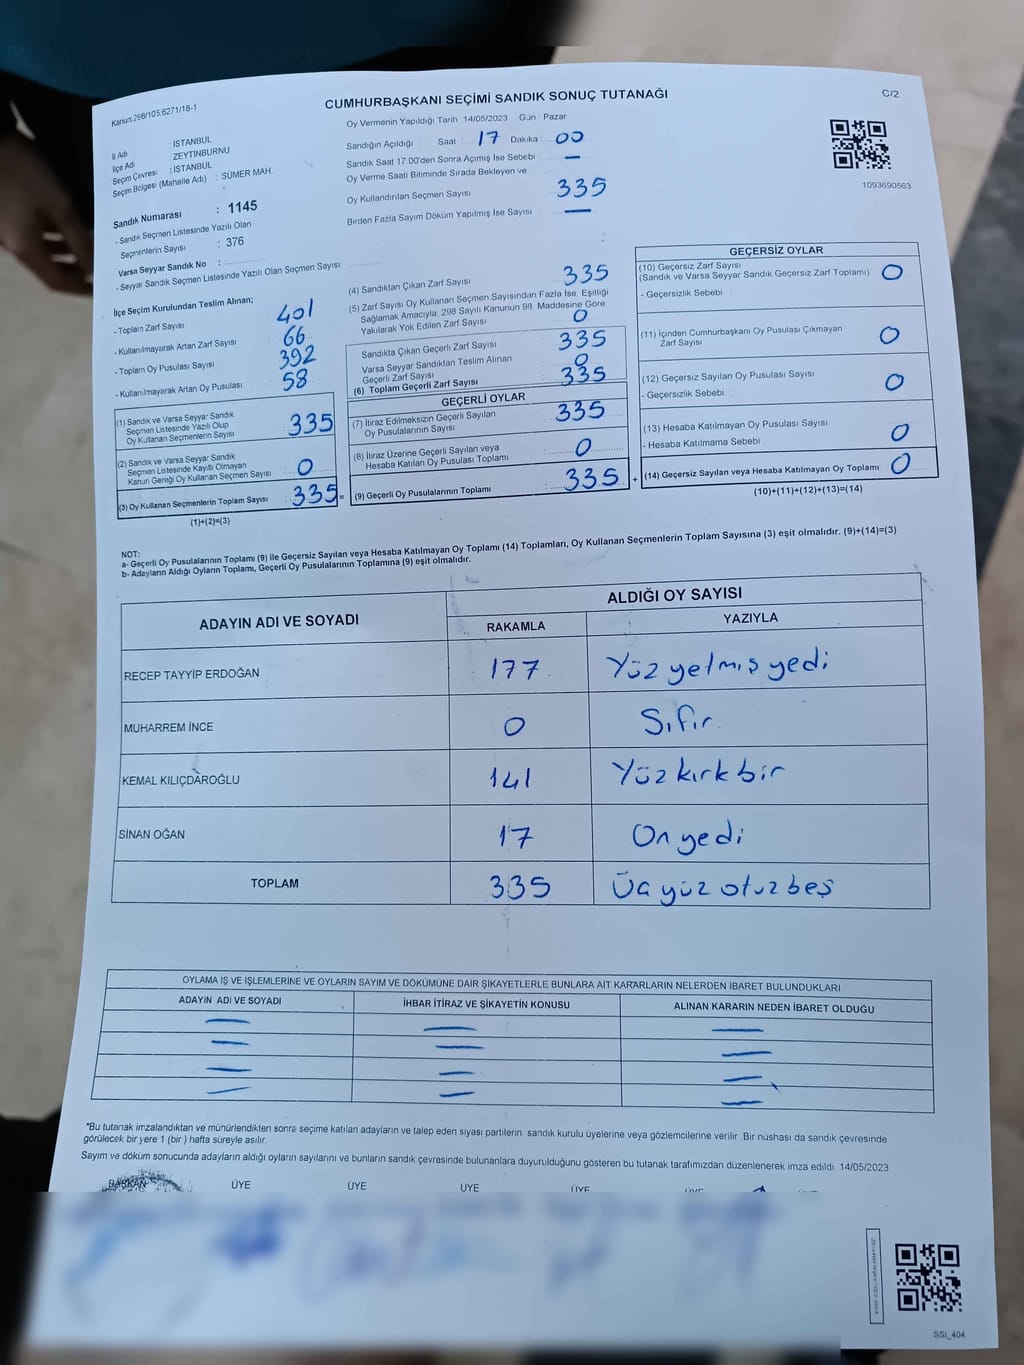 Kanun:298/105,6271/18-1
CUMHURBAŞKANI SEÇİMİ SANDIK SONUÇ TUTANAĞI
C/2
İl Adı : İSTANBUL
İlçe Adı : ZEYTİNBURNU
Seçim Çevresi : İSTANBUL
Seçim Bölgesi (Mahalle Adı) : SÜMER MAH.
Sandık Numarası : 1145
- Sandık Seçmen Listesinde Yazılı Olan
Seçmenlerin Sayısı : 376
Varsa Seyyar Sandık No :
- Seyyar Sandık Seçmen Listesinde Yazılı Olan Seçmen Sayısı
Oy Vermenin Yapıldığı Tarih 14/05/2023 Gün : Pazar
Sandığın Açıldığı Saat : 17 Dakika : 00
Sandık Saat 17.00'den Sonra Açımış İse Sebebi —
Oy Verme Saati Bitiminde Sırada Bekleyen ve
Oy Kullandırılan Seçmen Sayısı 335
Birden Fazla Sayım Döküm Yapılmış İse Sayısı —
1093690563
İlçe Seçim Kurulundan Teslim Alınan;
- Toplam Zarf Sayısı 401
- Kullanılmayarak Artan Zarf Sayısı 66
- Toplam Oy Pusulası Sayısı 392
- Kullanılmayarak Artan Oy Pusulası 58
(1) Sandık ve Varsa Seyyar Sandık
Seçmen Listesinde Yazılı Olup
Oy Kullanan Seçmenlerin Sayısı 335
(2) Sandık ve Varsa Seyyar Sandık
Seçmen Listesinde Kayıtlı Olmayan
Kanun Gereği Oy Kullanan Seçmen Sayısı 0
(3) Oy Kullanan Seçmenlerin Toplam Sayısı 335 =
(1)+(2)=(3)
(4) Sandıktan Çıkan Zarf Sayısı 335
(5) Zarf Sayısı Oy Kullanan Seçmen Sayısından Fazla İse, Eşitliği
Sağlamak Amacıyla, 298 Sayılı Kanunun 98. Maddesine Göre
Yakılarak Yok Edilen Zarf Sayısı 0
Sandıkta Çıkan Geçerli Zarf Sayısı 335
Varsa Seyyar Sandıktan Teslim Alınan
Geçerli Zarf Sayısı 0
(6) Toplam Geçerli Zarf Sayısı 335
GEÇERLİ OYLAR
(7) İtiraz Edilmeksizin Geçerli Sayılan
Oy Pusulalarının Sayısı 335
(8) İtiraz Üzerine Geçerli Sayılan veya
Hesaba Katılan Oy Pusulası Toplamı 0
(9) Geçerli Oy Pusulalarının Toplamı 335 +
GEÇERSİZ OYLAR
(10) Geçersiz Zarf Sayısı
(Sandık ve Varsa Seyyar Sandık Geçersiz Zarf Toplamı) 0
- Geçersizlik Sebebi
(11) İçinden Cumhurbaşkanı Oy Pusulası Çıkmayan
Zarf Sayısı 0
(12) Geçersiz Sayılan Oy Pusulası Sayısı 0
- Geçersizlik Sebebi
(13) Hesaba Katılmayan Oy Pusulası Sayısı 0
- Hesaba Katılmama Sebebi
(14) Geçersiz Sayılan veya Hesaba Katılmayan Oy Toplamı 0
(10)+(11)+(12)+(13)=(14)
NOT:
a- Geçerli Oy Pusulalarının Toplamı (9) ile Geçersiz Sayılan veya Hesaba Katılmayan Oy Toplamı (14) Toplamları, Oy Kullanan Seçmenlerin Toplam Sayısına (3) eşit olmalıdır. (9)+(14)=(3)
b- Adayların Aldığı Oyların Toplamı, Geçerli Oy Pusulalarının Toplamına (9) eşit olmalıdır.
ADAYIN ADI VE SOYADI ALDIĞI OY SAYISI
RAKAMLA YAZIYLA
RECEP TAYYİP ERDOĞAN 177 Yüz yetmiş yedi
MUHARREM İNCE 0 Sıfır
KEMAL KILIÇDAROĞLU 141 Yüz kırk bir
SİNAN OĞAN 17 On yedi
TOPLAM 335 Üç yüz otuz beş
OYLAMA İŞ VE İŞLEMLERİNE VE OYLARIN SAYIM VE DÖKÜMÜNE DAİR ŞİKAYETLERLE BUNLARA AİT KARARLARIN NELERDEN İBARET BULUNDUKLARI
ADAYIN ADI VE SOYADI İHBAR İTİRAZ VE ŞİKAYETİN KONUSU ALINAN KARARIN NEDEN İBARET OLDUĞU
— — —
— — —
— — —
— — —
*Bu tutanak imzalandıktan ve mühürlendikten sonra seçime katılan adayların ve talep eden siyasi partilerin sandık kurulu üyelerine veya gözlemcilerine verilir. Bir nüshası da sandık çevresinde
görülecek bir yere 1 (bir) hafta süreyle asılır.
Sayım ve döküm sonucunda adayların aldığı oyların sayılarını ve bunların sandık çevresinde bulunanlara duyurulduğunu gösteren bu tutanak tarafımızdan düzenlenerek imza edildi 14/05/2023
BAŞKAN ÜYE ÜYE ÜYE ÜYE ÜYE
SSI_404